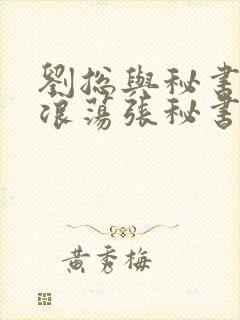 劉總與秘書
浪蕩張秘書
黃秀梅